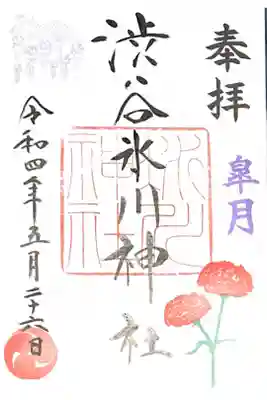 奉拝
皐月
渋谷氷川神社
令和四年五月二十六日